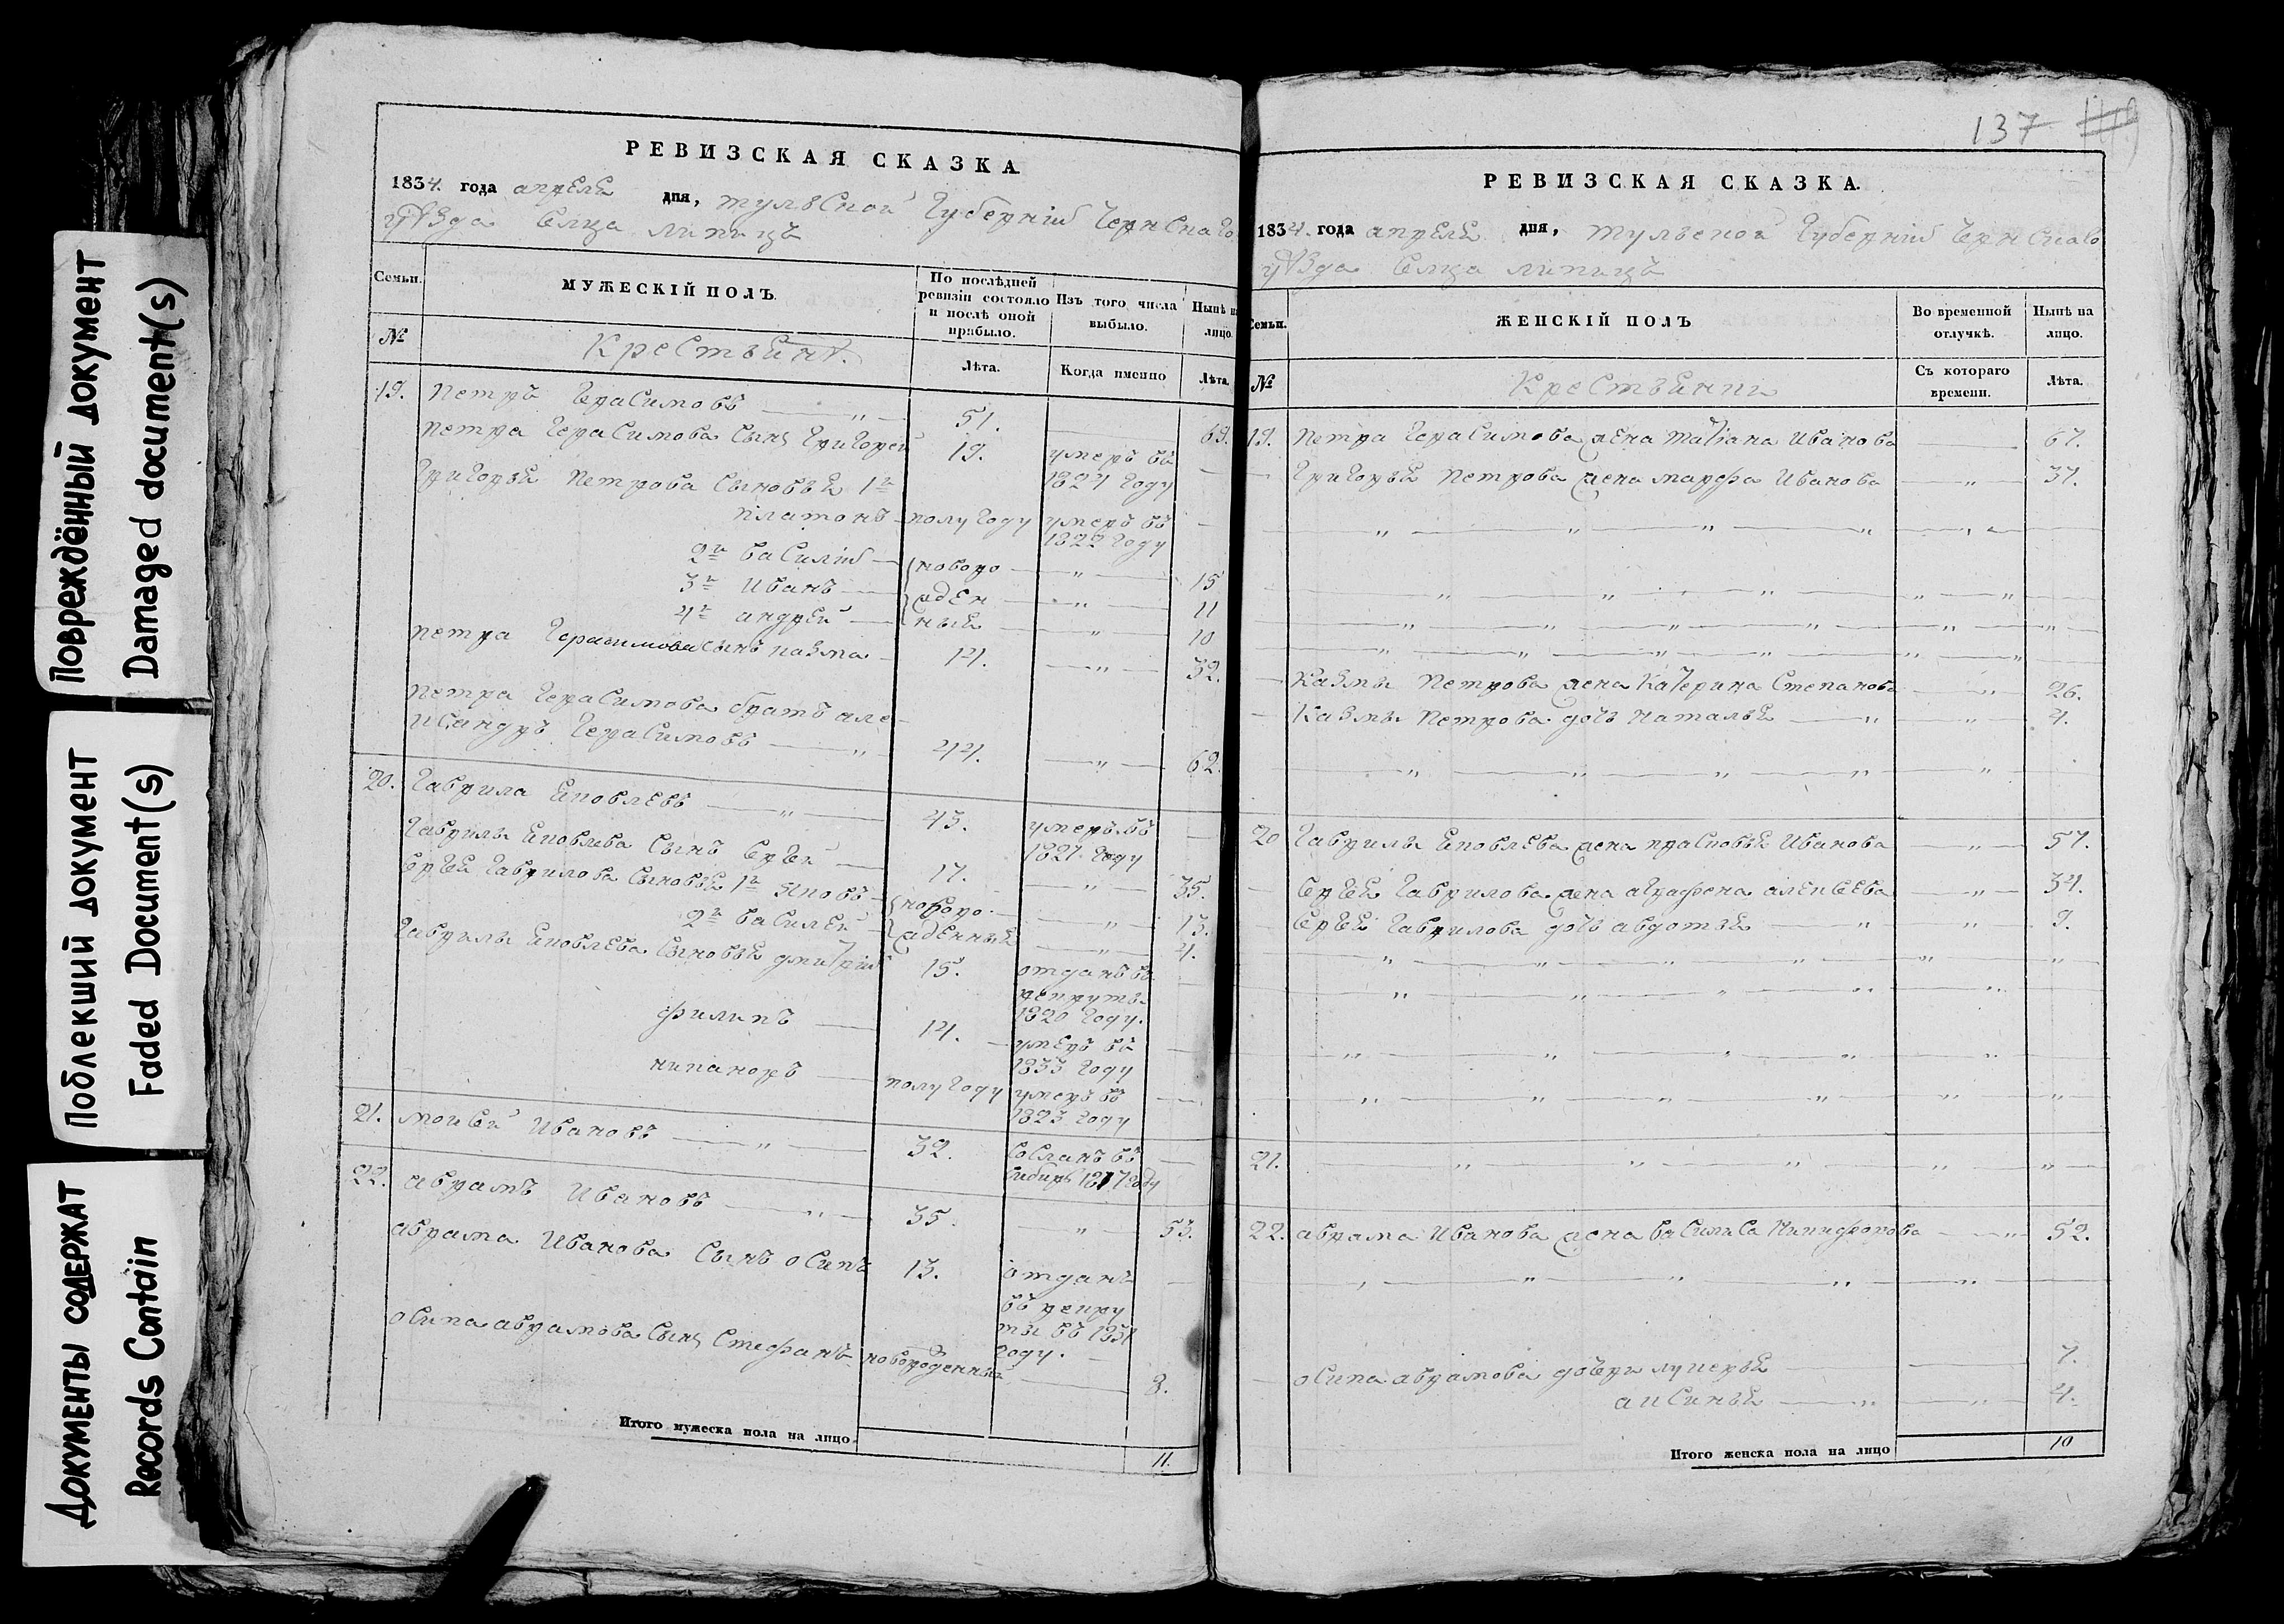 Повреждённый документ
Damaged document(s)
Поблекший документ
Faded Document(s)
Документы содержат
Records Contain
РЕВИЗСКАЯ СКАЗКА
1834. года апреля дня, тульской губернии чернскаго
уѣзда Селца липицъ
Семьи.
МУЖЕСКІЙ ПОЛЪ.
По послѣдней ревизіи состояло и послѣ оной прибыло.
Изъ того числа выбыло.
Нынѣ на лицо.
№
Крестьянѣ.
Лѣта.
Когда именно
Лѣта.
19. Петръ Герасимовъ — „ — 51. — 69.
Петра Герасимова сынъ Григорей 19. умеръ въ
1827 году —
Григорья Петрова сыновья 1й
платонъ — полугоду умеръ въ
1822 году —
2й василій — новоро — „ — 15
3й Иванъ — жден — „ — 11
4й андрей — ныя — „ — 10
петра Герасимова сынъ казма — 14. — „ — 32.
петра Герасимова братъ але
ксандръ Герасимовъ — „ 44. — „ — 62.
20. Гаврила Яковлевъ — „ — 43. умеръ въ
1827 году —
Гаврилы Яковлева сынъ Сергей — 17. — „ — 35.
Сергея Гаврилова сыновья 1й яковъ — новоро — „ — 13.
2й василей — жденныя — „ — 4.
Гаврилы Яковлева сыновья дмитрій 15. отданъ въ
рекруты
1820 году.
филипъ — 14. — умеръ въ
1833 году —
никаноръ — полугоду умеръ въ
1823 году —
21. моисей Ивановъ — „ — 32. сосланъ въ
сибирь 1817 году —
22. абрамъ Ивановъ — „ — 35. — „ — 53.
абрама Иванова сынъ осипъ 13. отданъ
въ рекру
ты въ 1831
году. —
осипа абрамова сынъ Стефанъ новорожденный — 8.
Итого мужеска пола на лицо 11.
137
РЕВИЗСКАЯ СКАЗКА.
1834. года апреля дня, тульской губернии чернскаго
уѣзда Селца липицъ
Семьи.
ЖЕНСКІЙ ПОЛЪ
Во временной отлучкѣ.
Нынѣ на лицо.
№
Крестьянки
Съ котораго времени.
Лѣта.
19. Петра Герасимова жена татіана Иванова — 67.
Григорья Петрова жена марфа Иванова — „ — 37.
Казмы Петрова жена Катерина Степанова — „ — 26.
Казмы Петрова дочь наталья — „ „ 4.
20 Гаврилы Яковлева жена прасковья Иванова — „ — 57.
Сергея Гаврилова жена аграфена алексеева — „ — 34.
Сергея Гаврилова дочь авдотья — „ „ 9.
21. — „ — „ — „ — „ — „ —
22. абрама Иванова жена василиса Никифорова — „ 52.
осипа абрамова дочери лукерья — 7.
аксинья — „ — „ — 4.
Итого женска пола на лицо 10